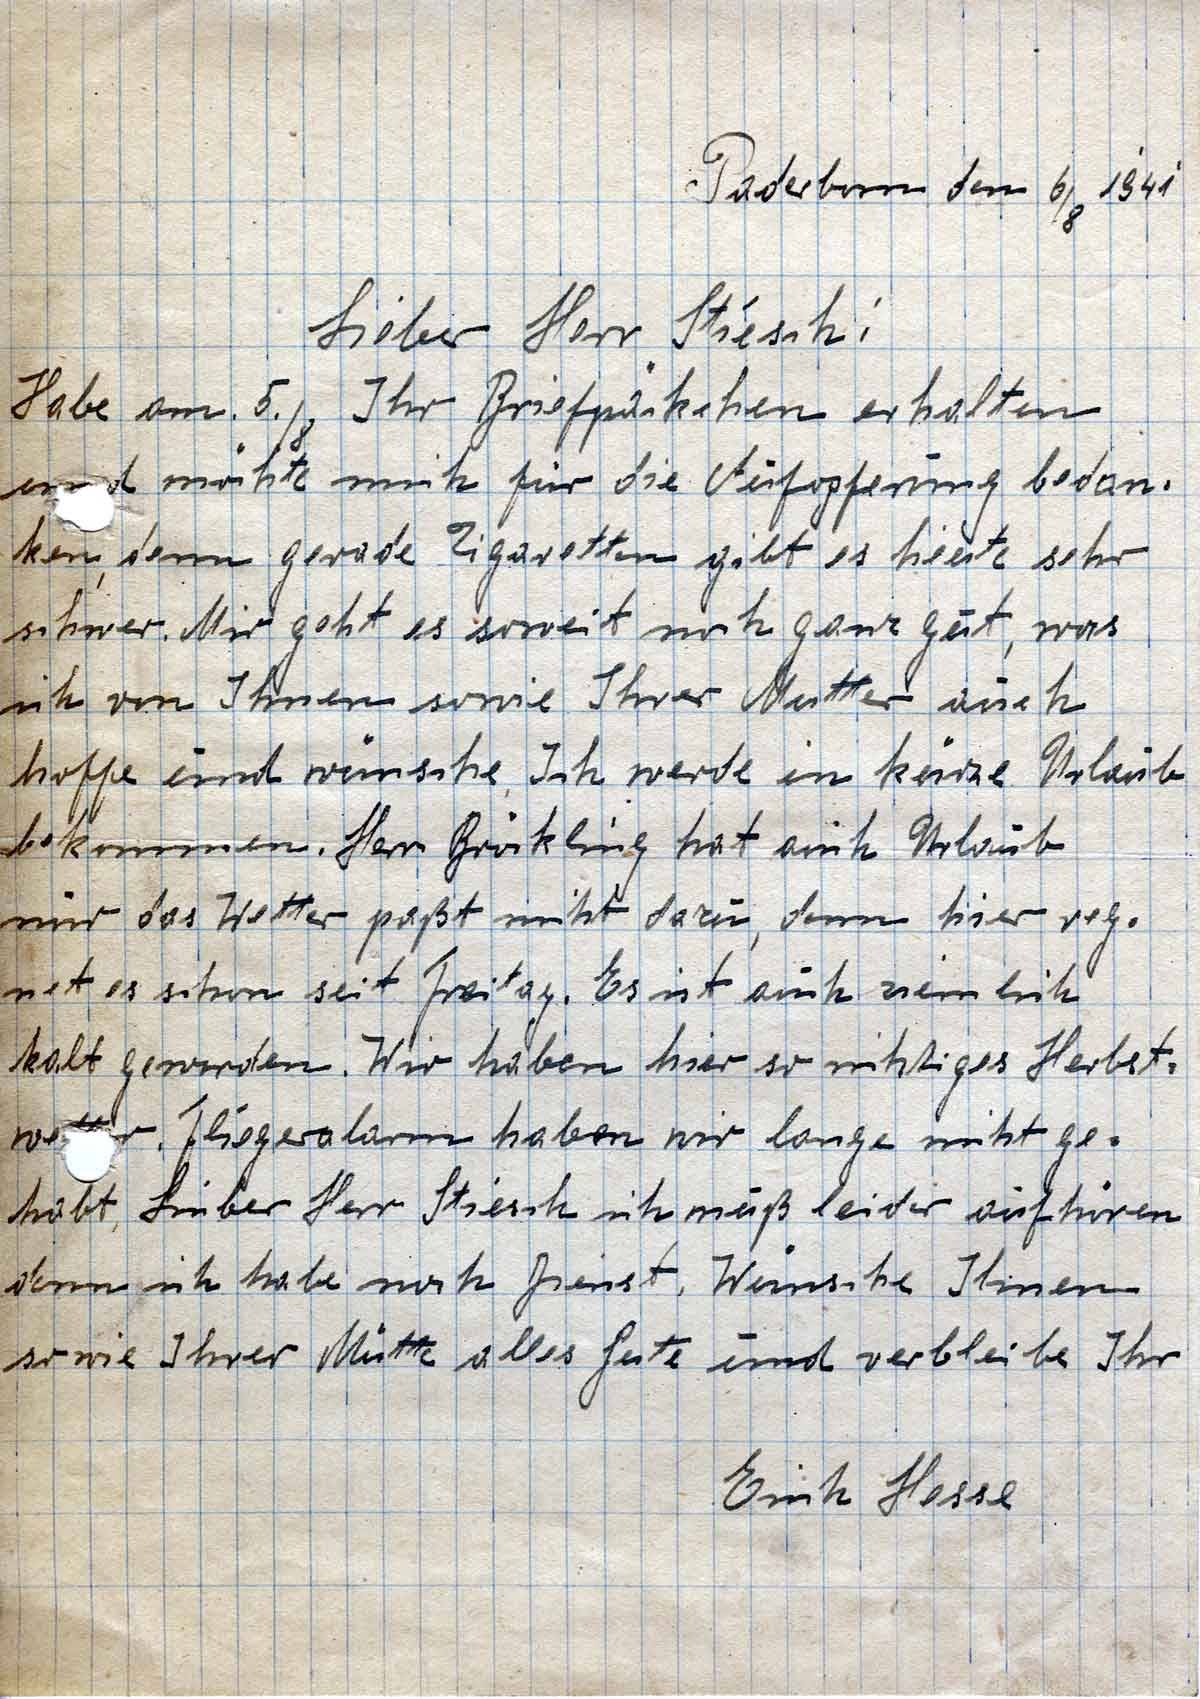 Paderborn den 6/8 1941
Lieber Herr Stiesch!
Habe am. 5./8 Ihr Briefpäckchen erhalten
und möchte mich für die Aufopferung bedan-
ken, denn gerade Zigaretten gibt es heute sehr
schwer. Mir geht es soweit noch ganz gut, was
ich von Ihnen sowie Ihrer Mutter auch
hoffe und wünsche. Ich werde in kürze Urlaub
bekommen. Herr Bröckling hat auch Urlaub
nur das Wetter paßt nicht dazu, denn hier reg-
net es schon seit Freitag. Es ist auch ziemlich
kalt geworden. Wir haben hier so richtiges Herbst-
wetter. Fliegeralarm haben wir lange nicht ge-
habt, Lieber Herr Stiesch ich muß leider aufhören
denn ich habe noch Dienst. Wünsche Ihnen
sowie Ihrer Mutte alles Gute und verbleibe Ihr
Erich Hesse